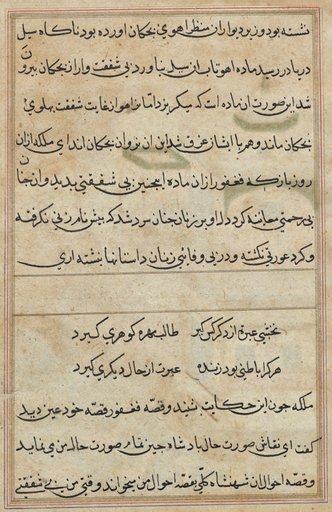 نشسته بود و بر دیوار آن منظر آهوی بچکان آورده بود ناگاه سیل
در بادر رسید ماده آهو تاب آن سیل نیاورد بی شفقت وار از بچکان بیرون
شد این صورت آن ماده است که میگریزد اما نر آهو از غایت شفقت پهلوی
بچکان ماند و هم با ایشان غرق شد این آن نر و آن بچکان اند ای ملکه از آن
روز باز که فغفور از آن ماده اینچنین بی شفقتی بدید و آن چنان
بی رحمتی معاینه کرد دل او بر زنان چنان سرد شد که پیش نام زن نگرفته
و گرد عورتی نگشته و در بی وفائی زنان داستانها نبشته آری
نخشبی عبرة از دگر کس گیر طالب بهره گوهری گیرد
هر کرا باطنی بود زنده عبرت از حال دیگری گیرد
ملکه چون این حکایت شنید و قصه فغفور قصه خود عین دید
گفت ای نقاش صورت حال پادشاه چین تمام صورت حال من می نماید
و قصه احوال آن شهنشاه کلی بقصه احوال من میخواند وقتی من بی شفقتی